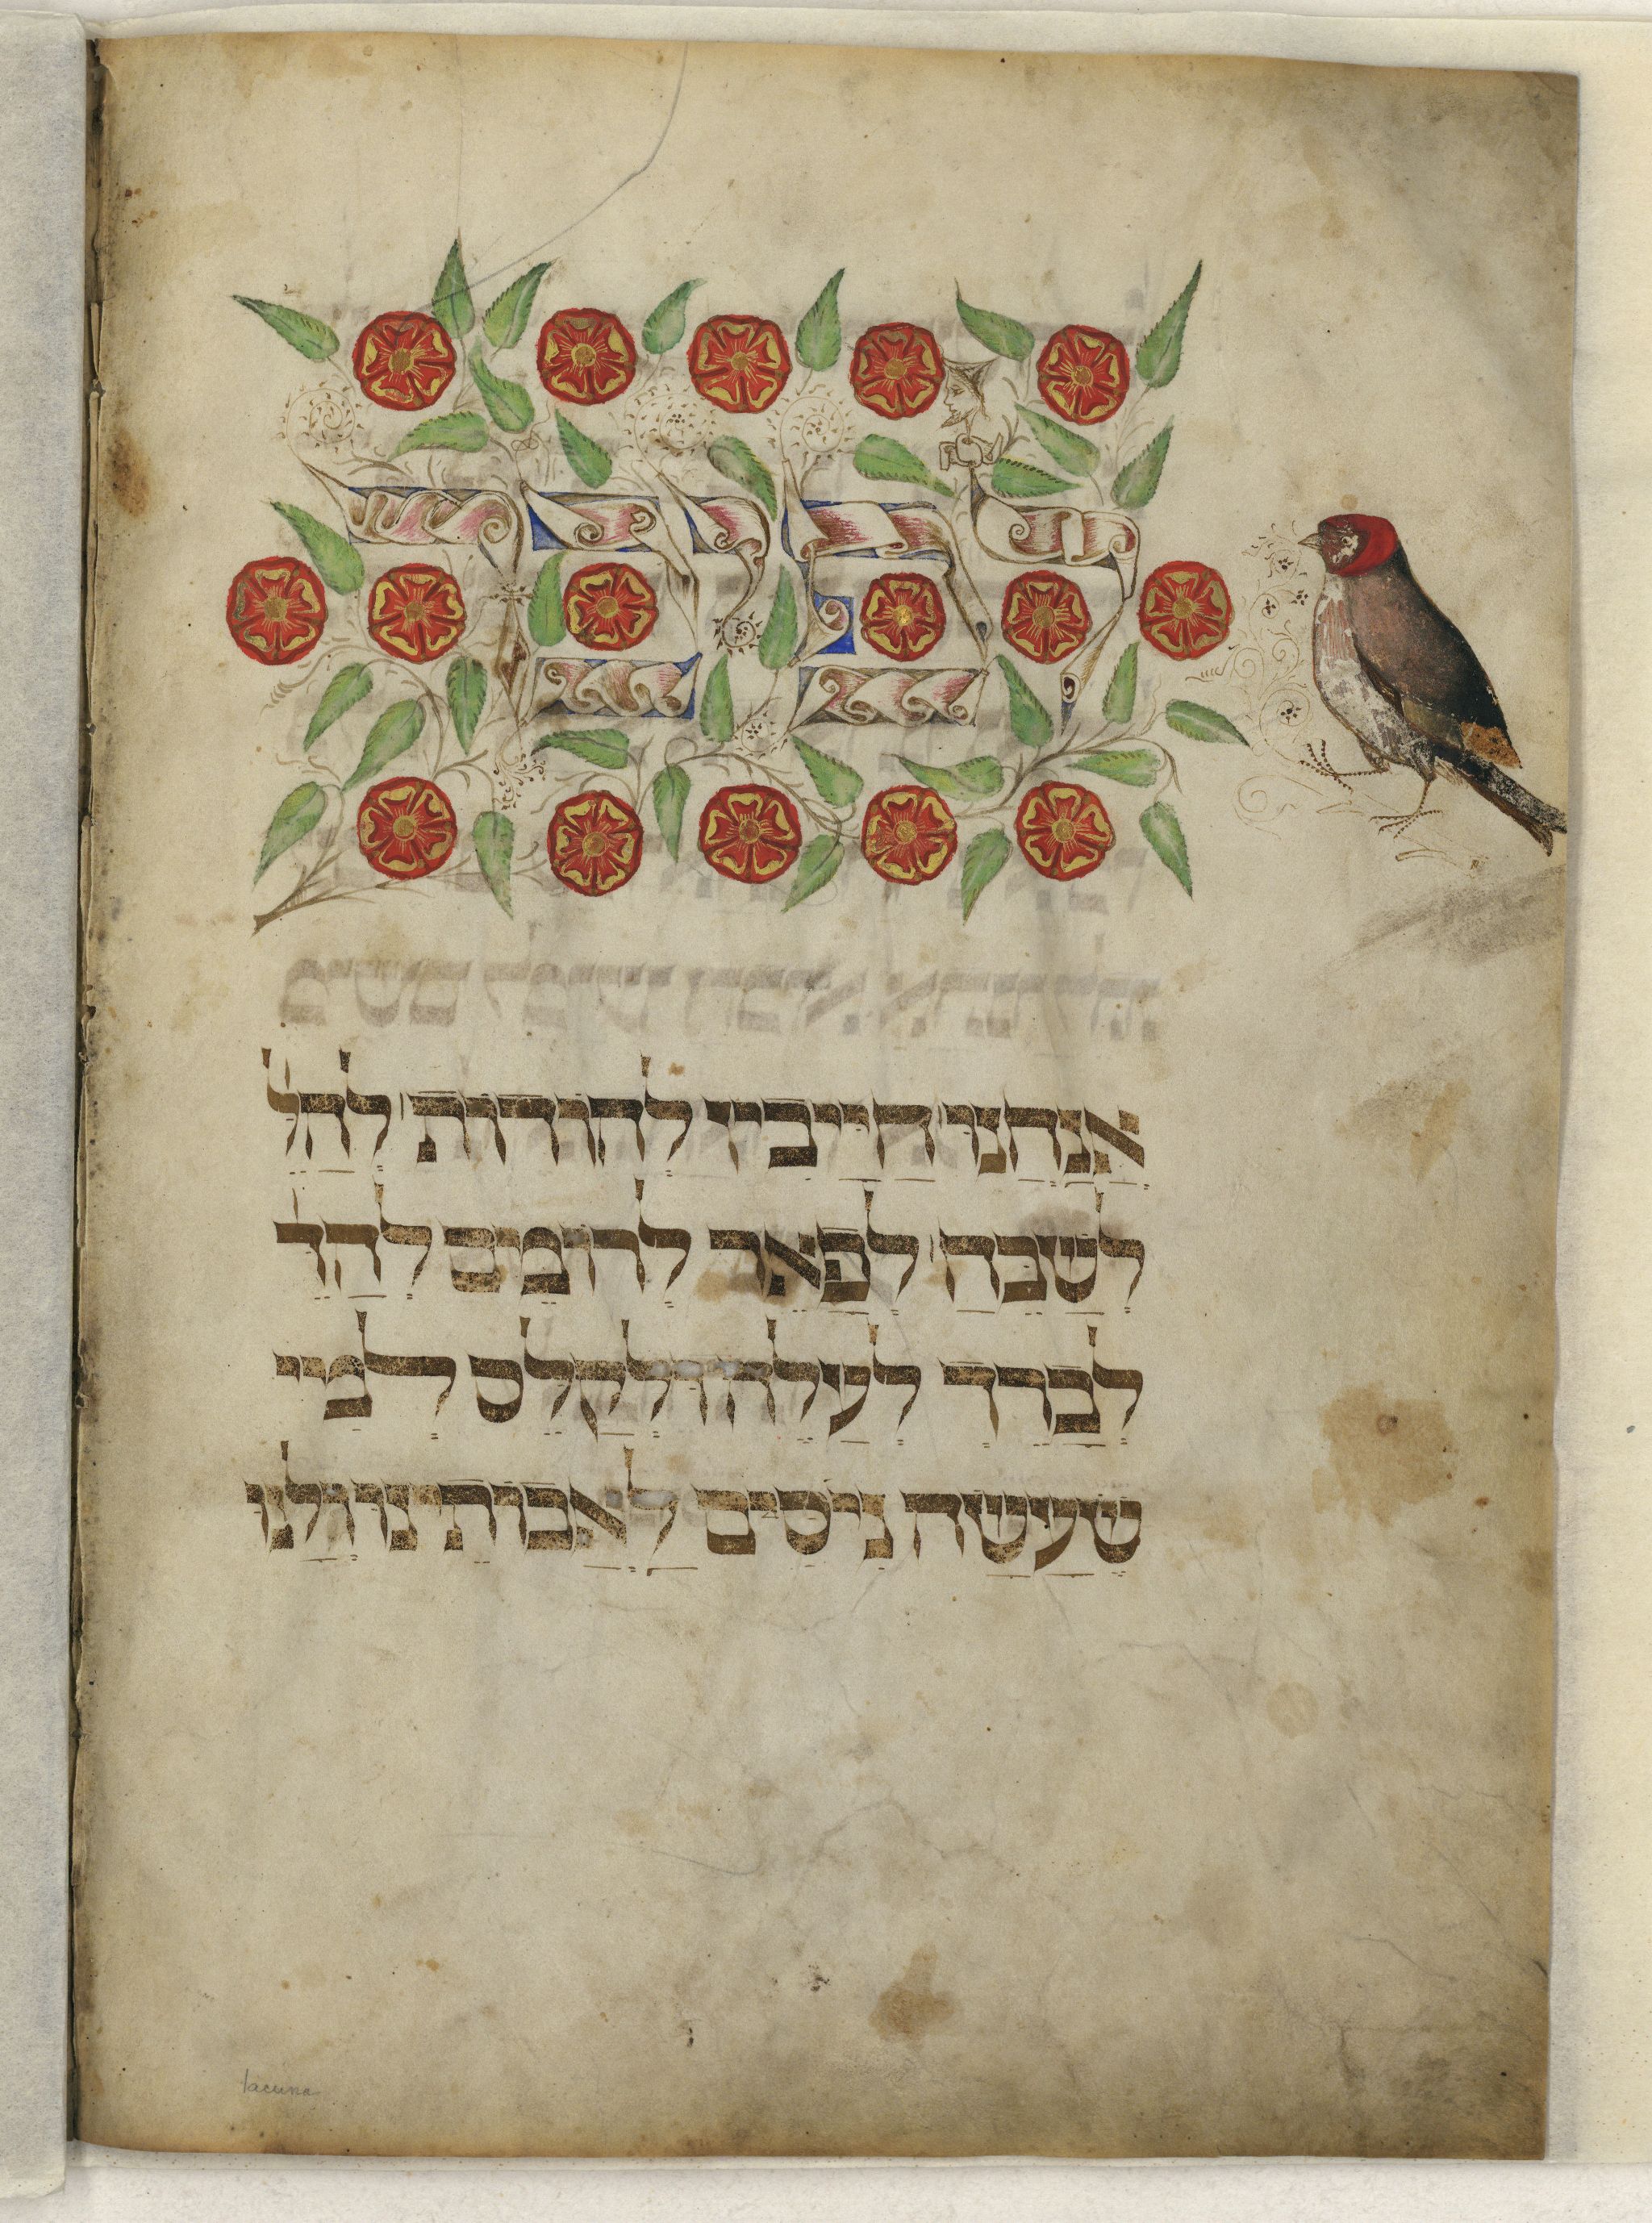 לפיכך
אֲנַחְנוּ חַיָּיבִין לְהוֹדוֹת לְהַלֵּ
לְשַׁבֵּחַ לְפָאֵר לְרוֹמֵם לְהַדֵּ
לְבָרֵךְ לְעַלֵּה וּלְקַלֵּס לְמִיי
שֶׁעָשָׂה נִיסִים לַאֲבוֹתֵינוּ וְלָנוּ
lacuna